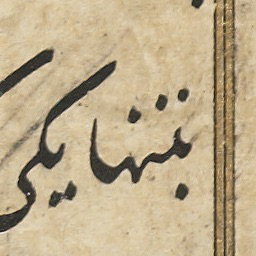 بتنها یکی